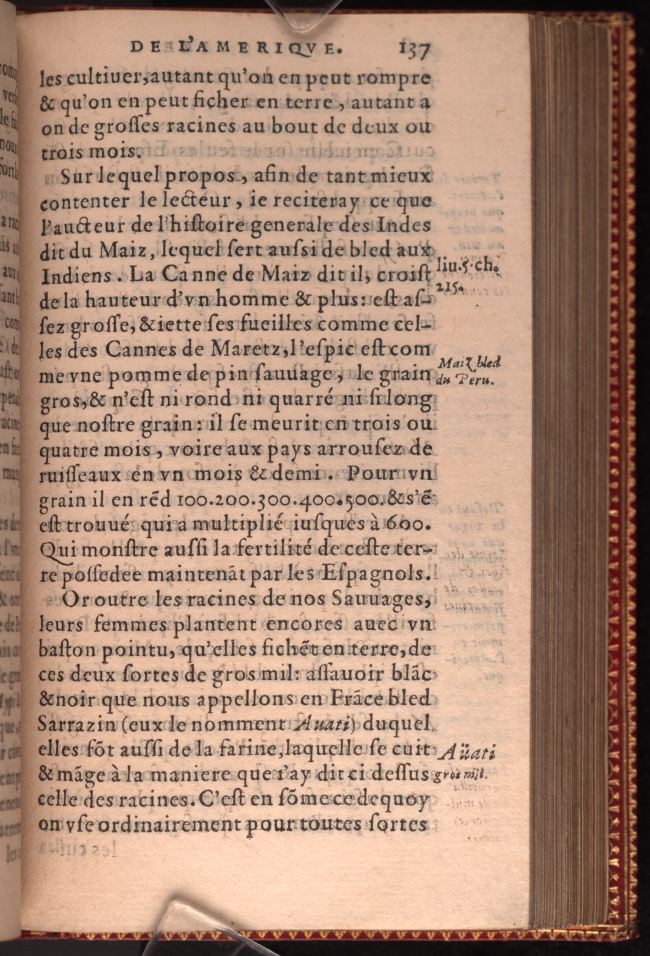 DE L'AMERIQVE. 137
les cultiuer, autant qu'on en peut rompre
& qu'on en peut ficher en terre, autant a
on de grosses racines au bout de deux ou
trois mois.
Sur lequel propos, afin de tant mieux
contenter le lecteur, ie reciteray ce que
l'aucteur de l'histoire generale des Indes
dit du Maiz, lequel sert aussi de bled aux
Indiens. La Canne de Maiz dit il, croist
liu. 5. ch.
215.
de la hauteur d'vn homme & plus: est as-
sez grosse, & iette ses fueilles comme cel-
les des Cannes de Maretz, l'espic est com
Maiz bled
du Peru.
me vne pomme de pin sauuage, le grain
gros, & n'est ni rond ni quarré ni si long
que nostre grain: il se meurit en trois ou
quatre mois, voire aux pays arrousez de
ruisseaux en vn mois & demi. Pour vn
grain il en rēd 100.200.300.400.500. & s'ē
est trouué qui a multiplié iusques à 600.
Qui monstre aussi la fertilité de ceste ter-
re possedee maintenāt par les Espagnols.
Or outre les racines de nos Sauuages,
leurs femmes plantent encores auec vn
baston pointu, qu'elles fichēt en terre, de
ces deux sortes de gros mil: assauoir blāc
& noir que nous appellons en Frāce bled
Sarrazin (eux le nomment Auati) duquel
elles fōt aussi de la farine, laquelle se cuit
Aüati
gros mil.
& māge à la maniere que i'ay dit ci dessus
celle des racines. C'est en sōme ce dequoy
on vse ordinairement pour toutes sortes